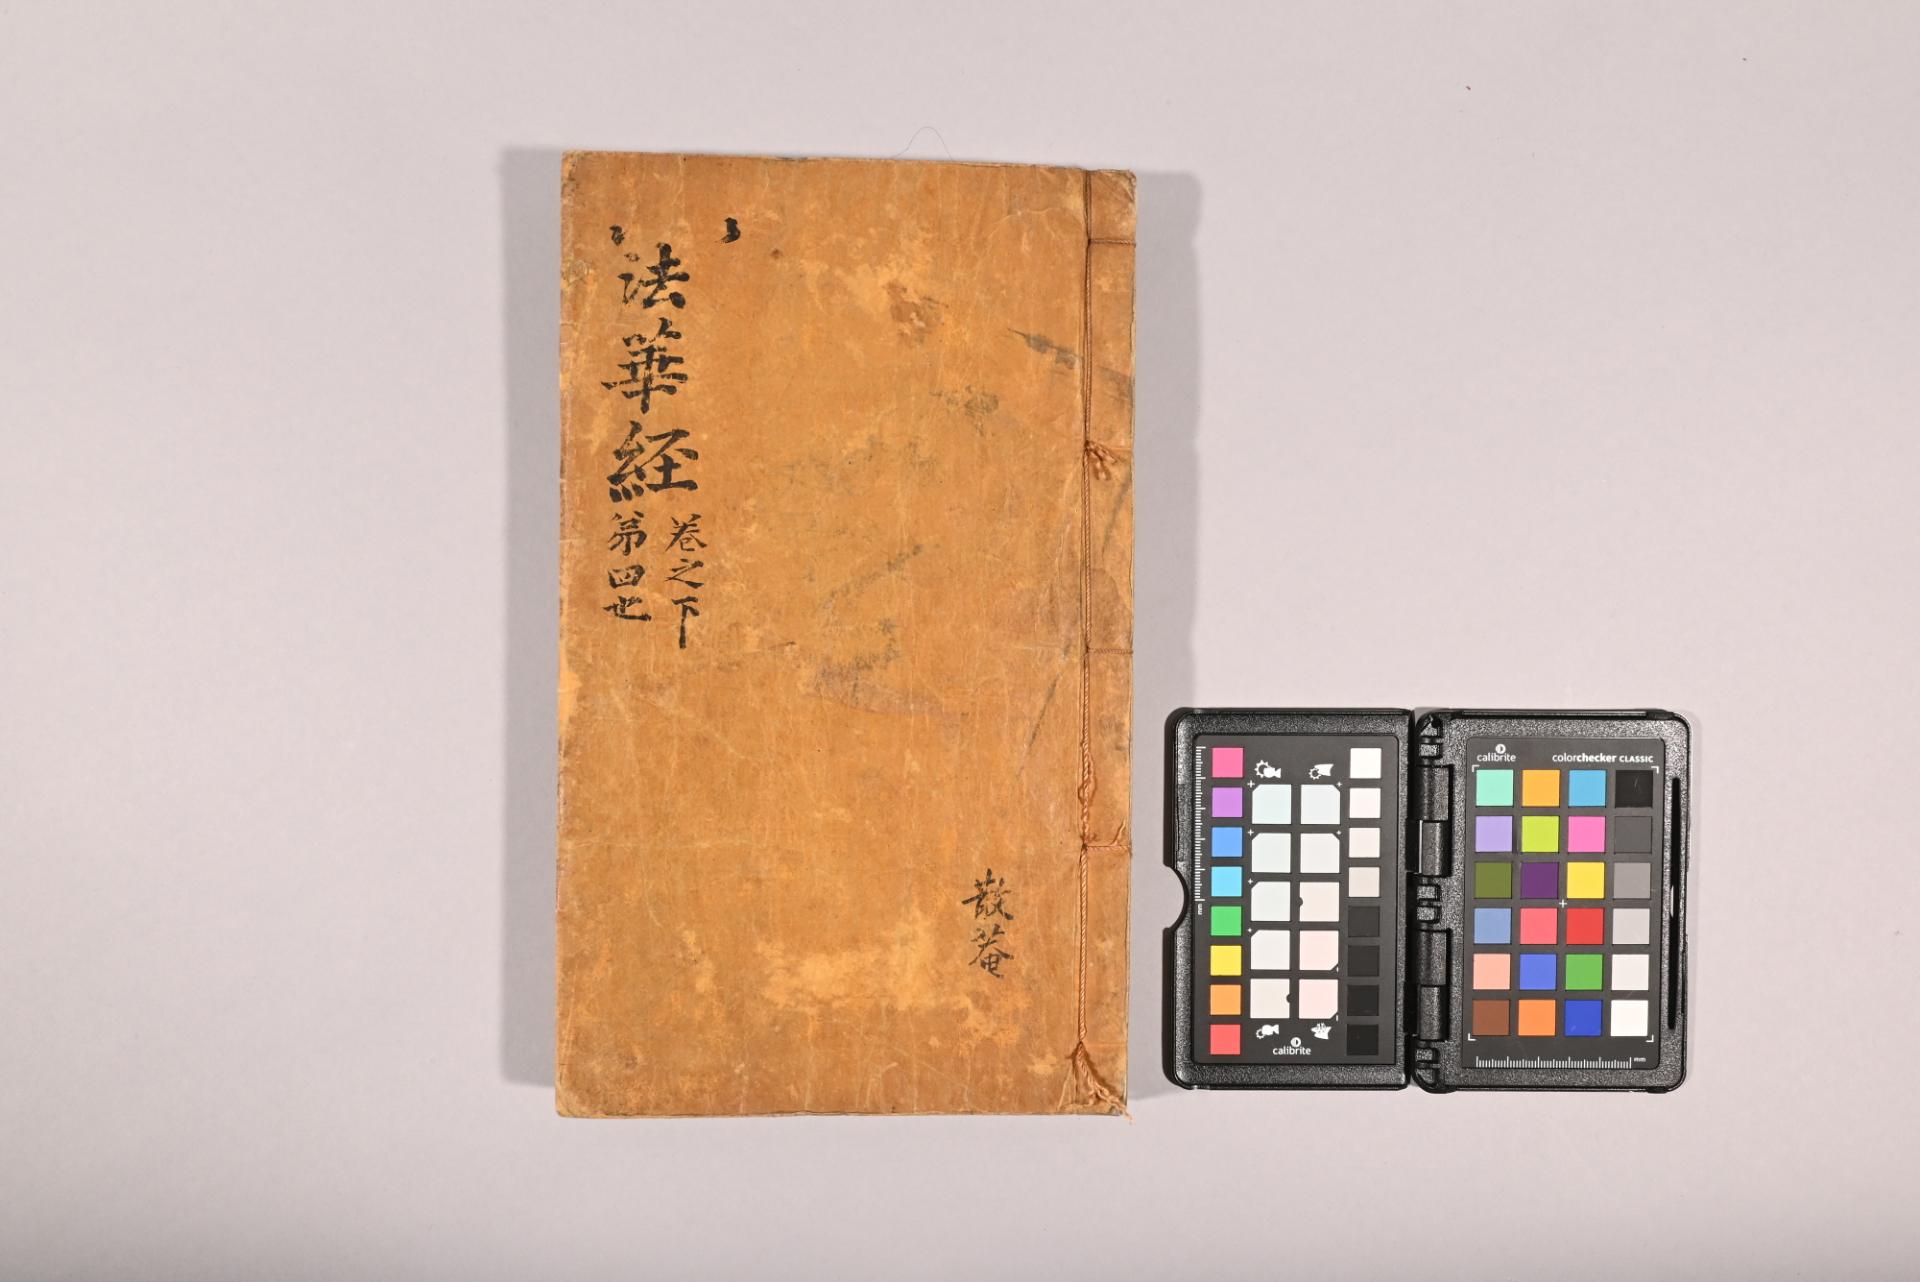 法華経
卷之下
第四世
散菴
calibrite
colorchecker CLASSIC
calibrite
mm
mm